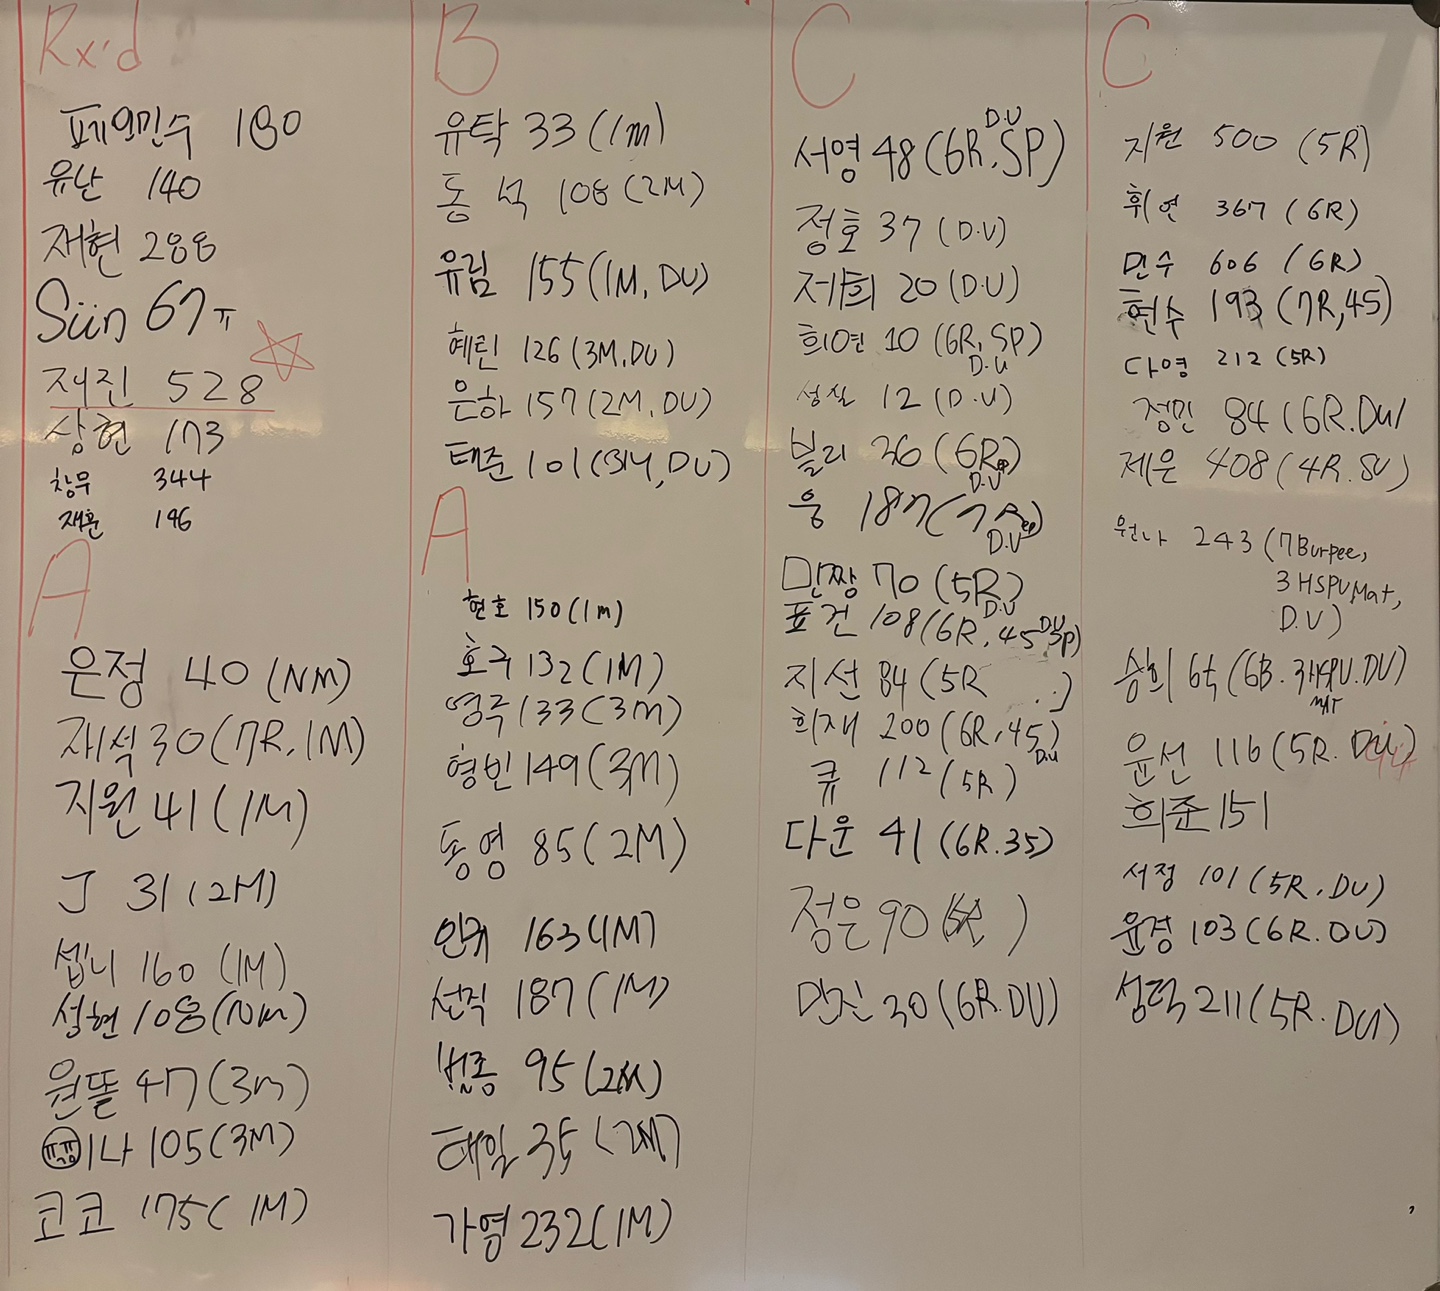 Rx'd
표예민수 180
유난 140
재현 288
Siin 67 ㅠ
재진 528
상현 173
창무 344
재훈 196
A
은정 40 (NM)
재석 30 (7R, 1M)
지원 41 (1M)
J 31 (2M)
셉니 160 (1M)
성현 108 (Nm)
원똘 47 (3m)
105 (3M)
코코 175 (1M)
B
유탁 33 (1m)
동석 108 (2M)
유림 155 (1M, DU)
혜린 126 (3M, DU)
은하 157 (2M, DU)
태준 101 (3M, DU)
A
현호 150 (1m)
호구 132 (1M)
영주 133 (3m)
형빈 149 (3M)
동영 85 (2M)
인귀 163 (1M)
선직 187 (1M)
범종 95 (2M)
태일 35 (2M)
가영 232 (1M)
C
서영 48 (6R, SP) D.U
정호 37 (D.U)
재희 20 (D.U)
희연 10 (6R, SP)
D.U
성실 12 (D.U)
빌리 36 (6R)
D.U
웅 187 (7R)
D.U
민짱 70 (5R)
D.U
표건 108 (6R, 45 SP) D.U
지선 84 (5R )
희재 200 (6R, 45)
D.U
큐 112 (5R)
다운 41 (6R. 35)
정은 90 ( )
민진 30 (6R. DU)
C
지원 500 (5R)
휘연 367 (6R)
민수 606 (6R)
현수 193 (7R, 45)
다영 212 (5R)
정민 84 (6R. DU)
제운 408 (4R. SU)
원나 243 (7 Burpee,
3 HSPU Mat,
D.U)
승희 (6B. 3HSPU. DU)
MAT
윤선 116 (5R. DU)
희준 151
서정 101 (5R. DU)
윤경 103 (6R. DU)
성덕 211 (5R. DU)